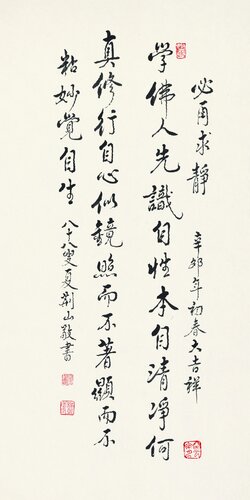 學佛人先識自性本自清淨何
必再求靜　辛卯年初春大吉祥
真修行自心似鏡照而不著顯而不
粘妙覺自生　八十八叟夏荊山敬書